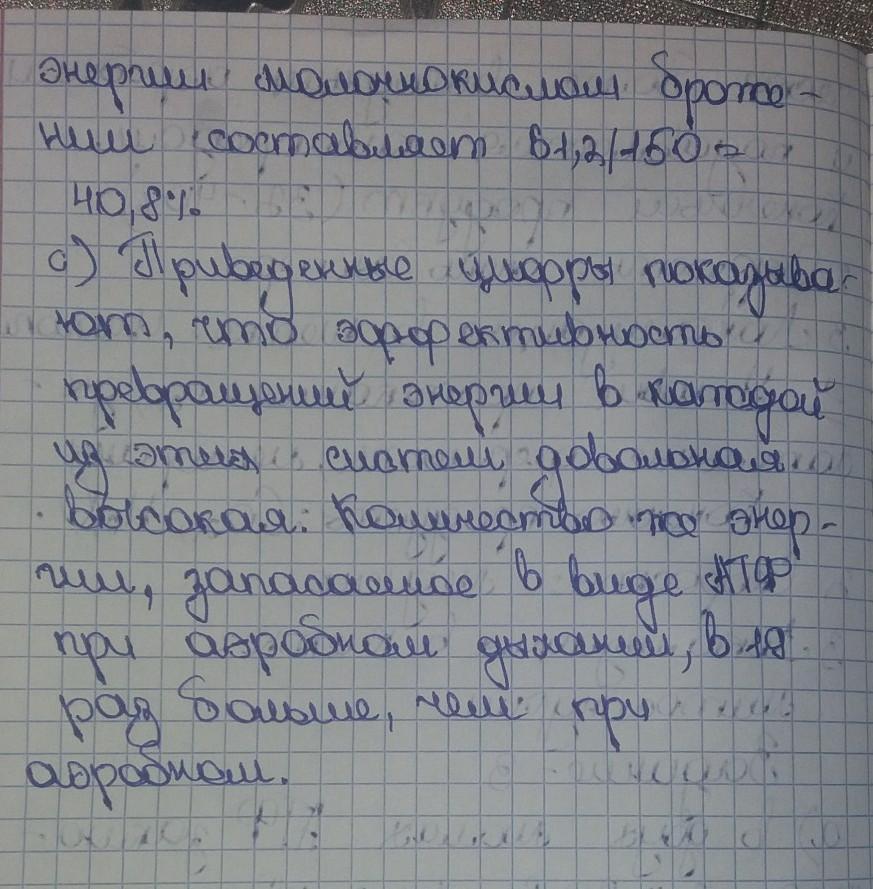 энергии молочнокислом броже-
нии составляет 61,2/150 =
40,8%
с) Приведенные цифры показыва-
ют, что эффективность
превращений энергии в каждой
из этих систем довольная
высокая. Количество же энер-
гии, запасаемое в виде АТФ
при аэробном дыхании, в 19
раз больше, чем при
аэробном.